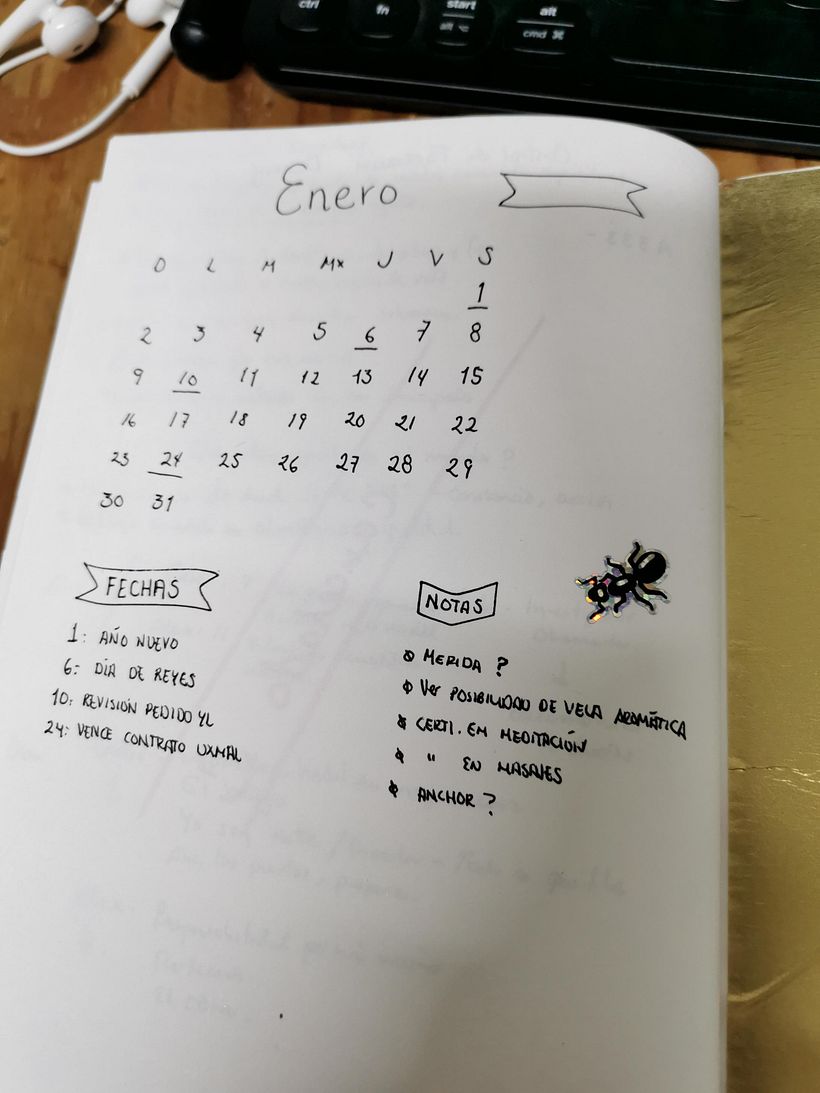 ctrl
fn
start
alt ⌥
alt
cmd ⌘
Enero
D L M Mx J V S
1
2 3 4 5 6 7 8
9 10 11 12 13 14 15
16 17 18 19 20 21 22
23 24 25 26 27 28 29
30 31
FECHAS
1: AÑO NUEVO
6: DÍA DE REYES
10: REVISIÓN PEDIDO YL
24: VENCE CONTRATO UXMAL
NOTAS
MERIDA ?
Ver POSIBILIDAD DE VELA AROMÁTICA
CERTI. EN MEDITACIÓN
" EN MASAJES
ANCHOR ?